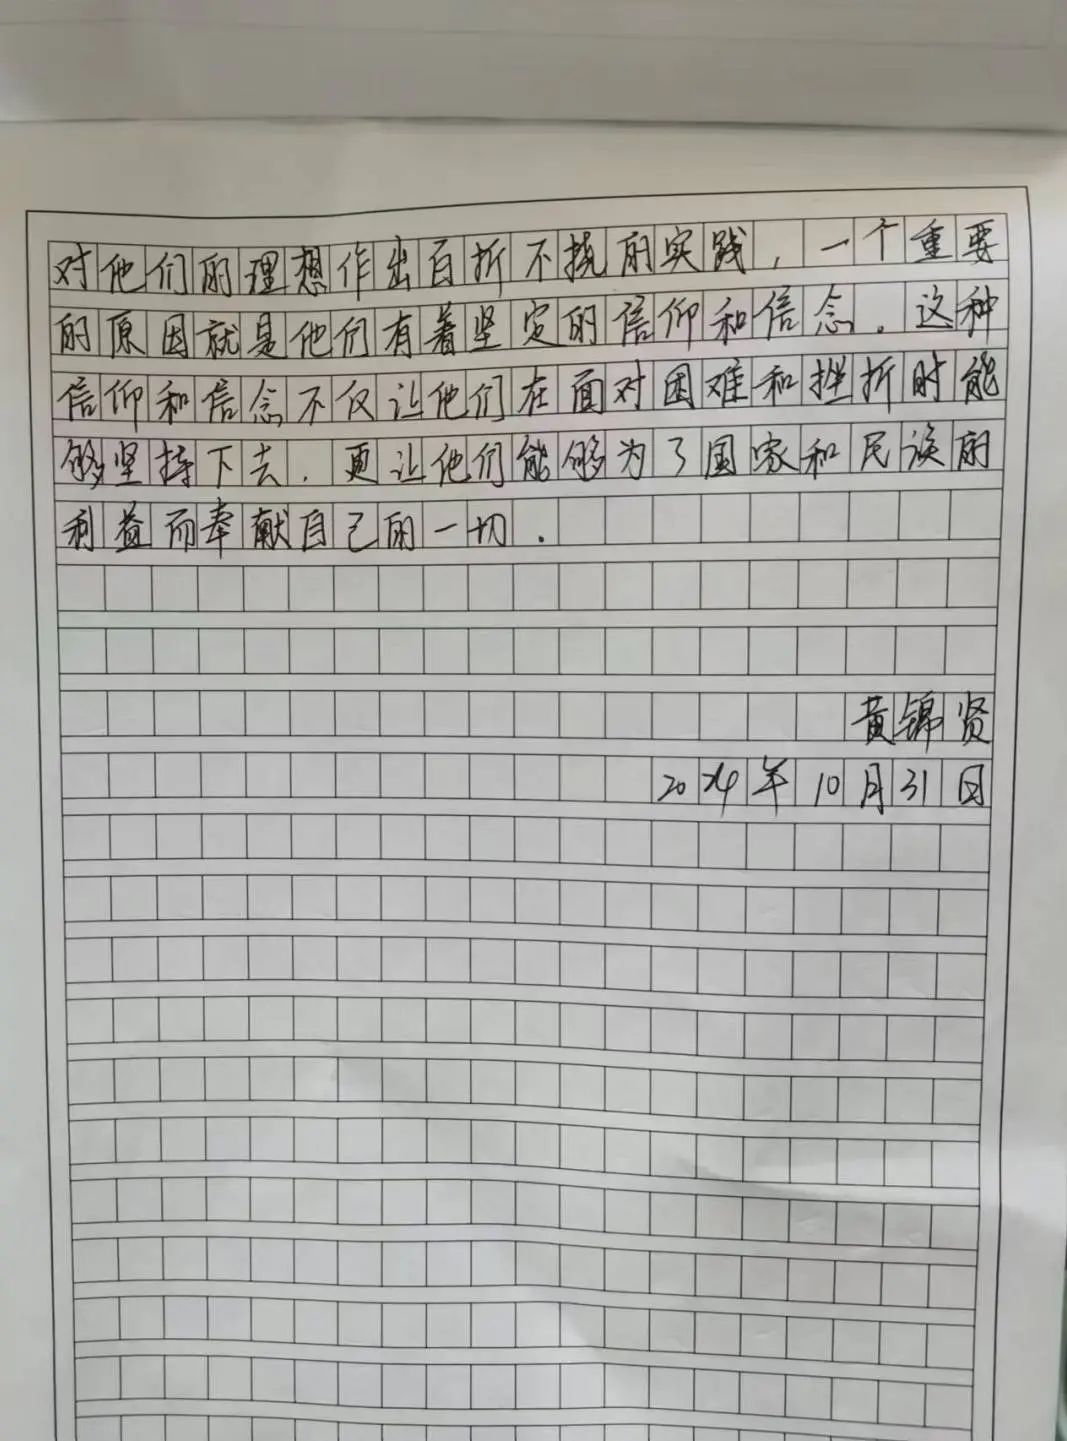 对他们的理想作出百折不挠的实践，一个重要
的原因就是他们有着坚定的信仰和信念。这种
信仰和信念不仅让他们在面对困难和挫折时能
够坚持下去，更让他们能够为了国家和民族的
利益而奉献自己的一切。
黄锦贤
2024年10月31日